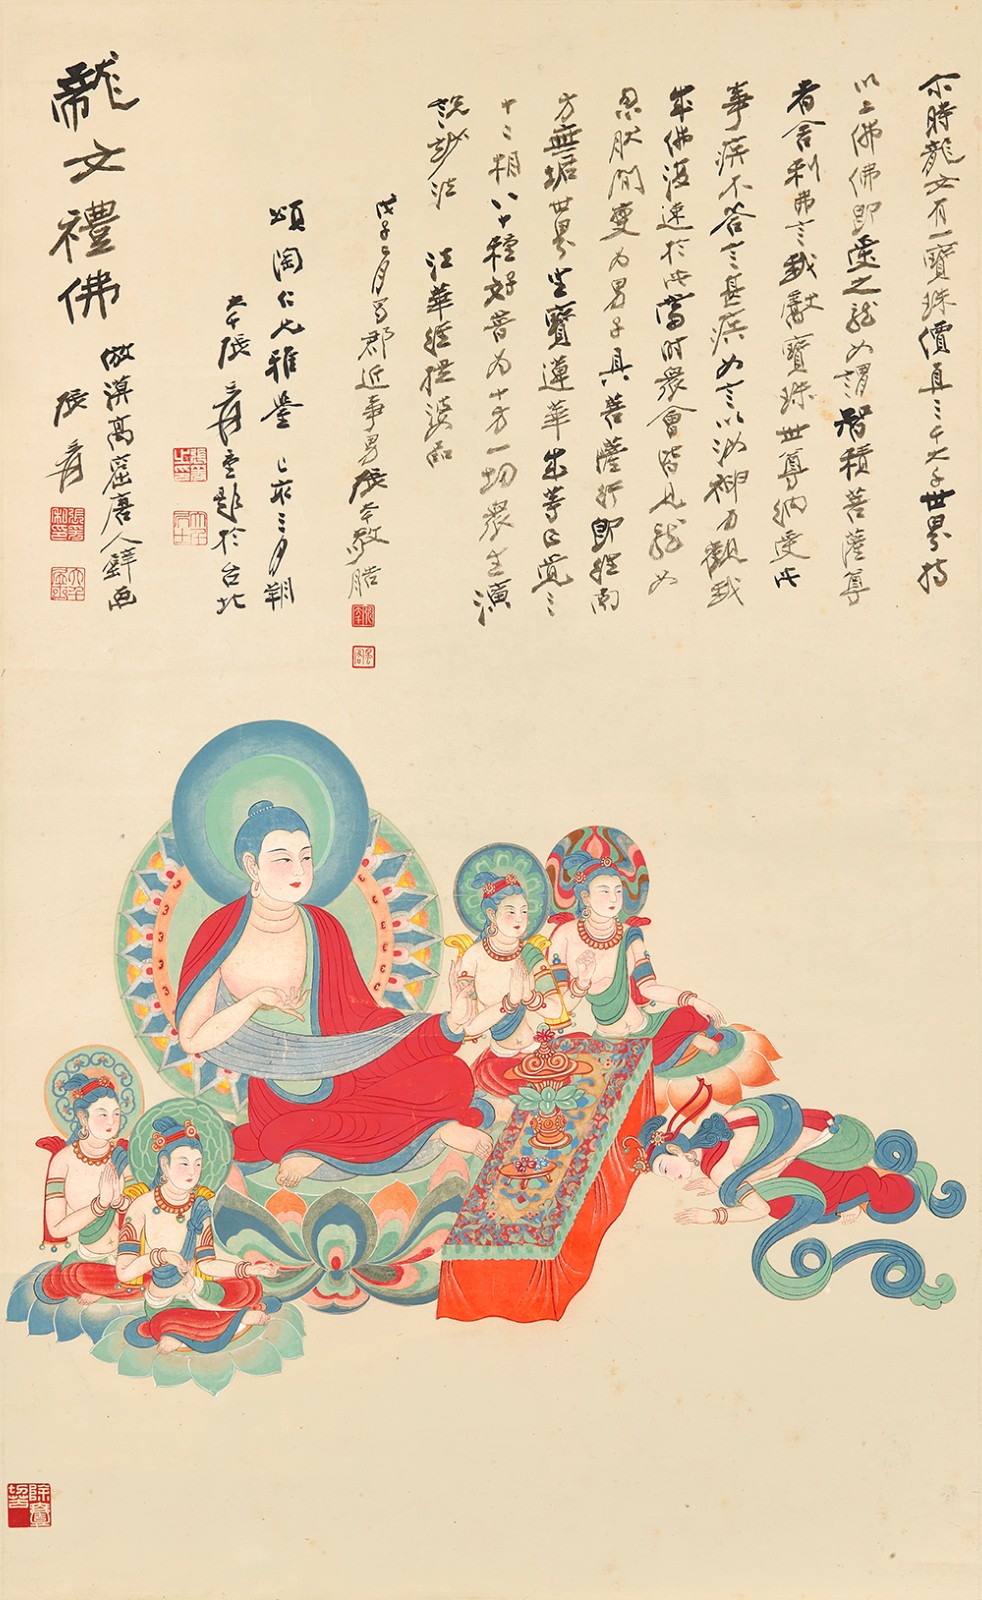 尒時龍女有一寶珠價直三千大千世界持
以上佛佛即受之龍女謂智積菩薩尊
者舍利弗言我獻寶珠世尊納受此
事疾不答言甚疾女言以汝神力觀我
成佛復速於此當時眾會皆見龍女
忽然間變為男子具菩薩行即往南
方無垢世界坐寶蓮華成等正覺三
十二相八十種好普為十方一切眾生演
說妙法　法華經提婆品
戊子月蜀郡近事男張敬
頌陶仁兄雅鑒　己亥三月朔
大千張爰重題於台北
龍女禮佛
倣漠高窟唐人画
張爰